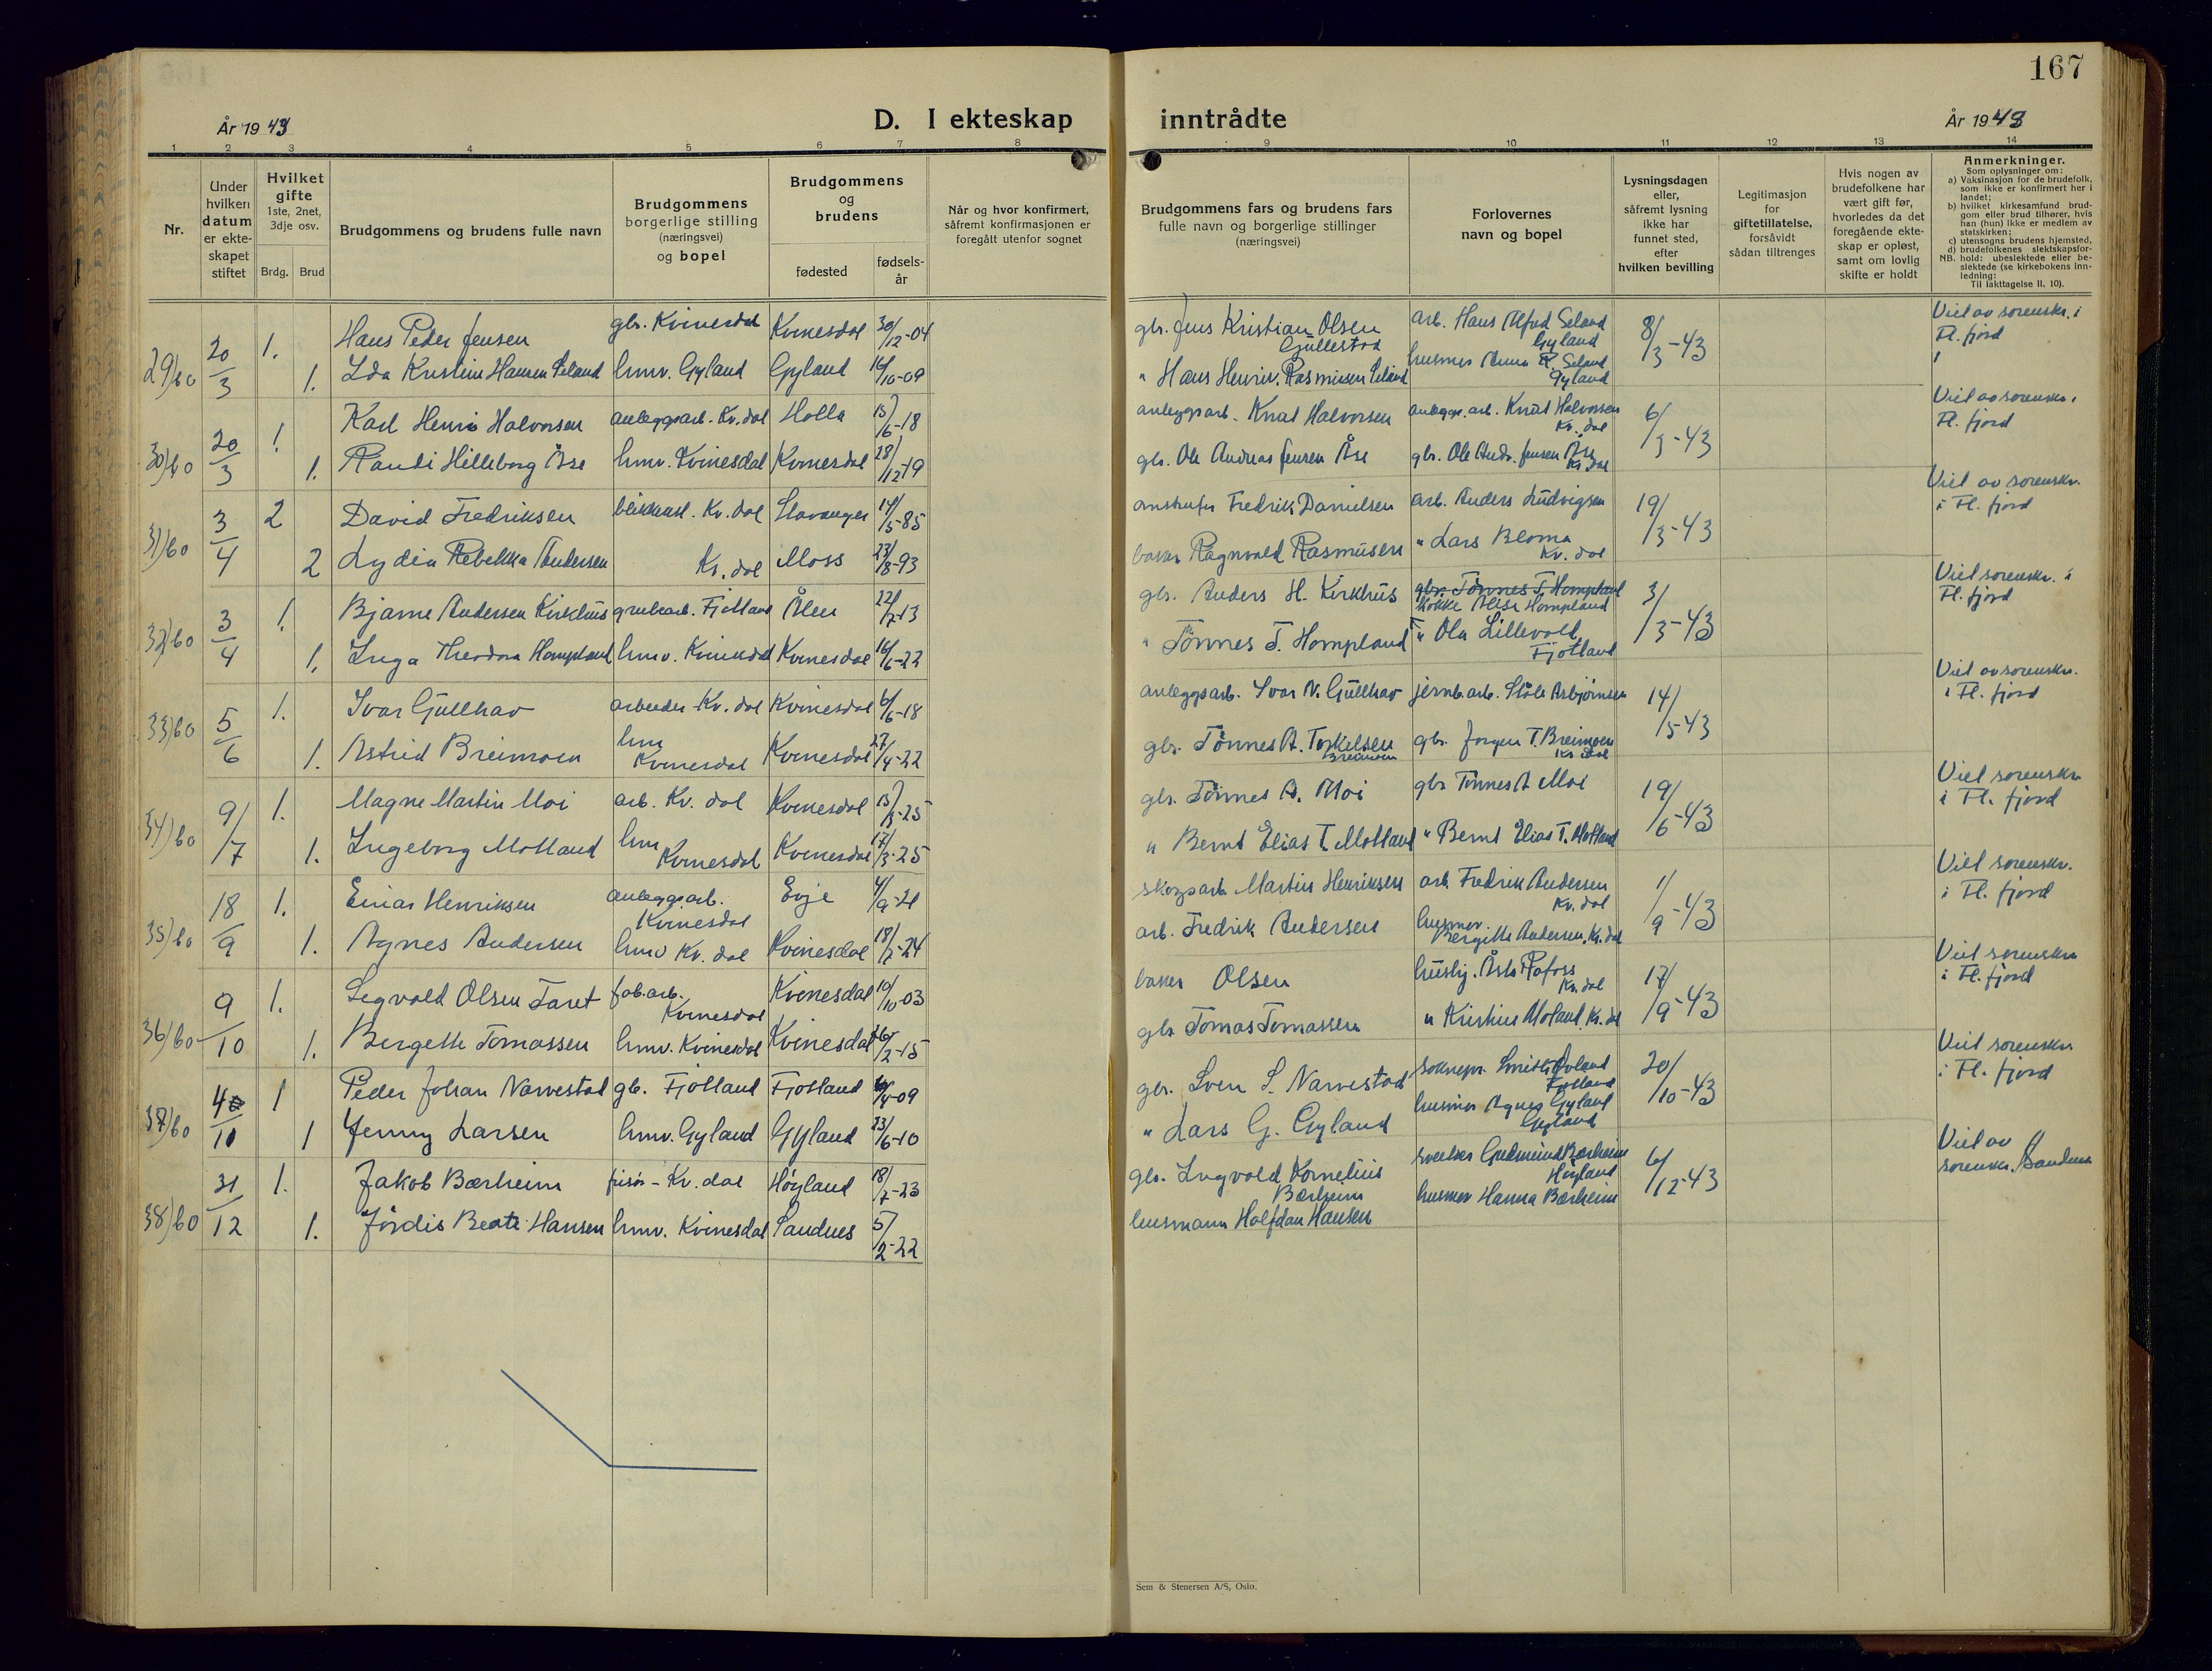 167
År 1943
D. I ekteskap inntrådte
År 1943
1 2 3 4 5 6 7 8 9 10 11 12 13 14
Nr.
Under
hvilken
datum
er ekte-
skapet
stiftet
Hvilket
gifte
1ste, 2net,
3dje osv.
Brdg. Brud
Brudgommens og brudens fulle navn
Brudgommens
borgerlige stilling
(næringsvei)
og bopel
Brudgommens
og
brudens
fødested
fødsels-
år
Når og hvor konfirmert,
såfremt konfirmasjonen er
foregått utenfor sognet
Brudgommens fars og brudens fars
fulle navn og borgerlige stillinger
(næringsvei)
Forlovernes
navn og bopel
Lysningsdagen
eller,
såfremt lysning
ikke har
funnet sted,
efter
hvilken bevilling
Legitimasjon
for
giftetillatelse,
forsåvidt
sådan tiltrenges
Hvis nogen av
brudefolkene har
vært gift før,
hvorledes da det
foregående ekte-
skap er opløst,
samt om lovlig
skifte er holdt
Anmerkninger.
Som oplysninger om:
a) Vaksinasjon for de brudefolk,
som ikke er konfirmert her i
landet;
b) hvilket kirkesamfund brud-
gom eller brud tilhører, hvis
han (hun) ikke er medlem av
statskirken;
c) utensogns brudens hjemsted,
d) brudefolkenes slektskapsfor-
NB. hold: ubeslektede eller be-
slektede (se kirkebokens inn-
ledning:
Til iakttagelse II. 10).
29)60 20/3 1. Hans Peder Jensen gbr. Kvinesdal Kvinesdal 30/12-04 gbr. Jens Kristian Olsen Gullestad arb. Hans Alfred Seland Gyland 8/3-43 Viet av sorenskr. i Fl. fjord
1. Ida Kristine Hansen Seland hmv. Gyland Gyland 16/10-09 " Hans Henrik Rasmussen Seland husmor Anna R. Seland Gyland
30)60 20/3 1. Karl Henri Halvorsen anleggsarb. Kv. dal Holla 15/6-18 anleggsarb. Knut Halvorsen anleggs. arb. Knut Halvorsen Kv. dal 6/3-43 Viet av sorenskr. i Fl. fjord
1. Randi Hilleborg Åse hmv. Kvinesdal Kvinesdal 28/12-19 gbr. Ole Andreas Jensen Åse gbr. Ole Andr. Jensen Åse Kv. dal
31)60 3/4 2 David Fredriksen Kv. dal Stavanger 14/5-85 Fredrik Danielsen arb. Anders Ludvigsen 19/3-43 Viet av sorenskr. i Fl. fjord
2 Lydia Rebekka Andersen Kv. dal Moss 23/8-93 baker Ragnvald Rasmussen " Lars Bloma Kv. dal
32)60 3/4 1. Bjarne Andersen Kirkhus grubearb. Fjotland Ålen 22/7-13 gbr. Anders H. Kirkhus gbr. Tønnes T. Hompland kokke Alise Hompland 3/3-43 Viet sorenskr. i Fl. fjord
1. Inga Theodora Hompland hmv. Kvinesdal Kvinesdal 16/6-22 " Tønnes T. Hompland " Ola Lillevold Fjotland
33)60 5/6 1. Ivar Gullhav arbeider Kv. dal Kvinesdal 6/6-18 anleggsarb. Ivar N. Gullhav jernb.arb. Ståle Asbjørnsen 14/5-43 Viet av sorenskr. i Fl. fjord
1. Astrid Breimoen hmv Kvinesdal Kvinesdal 27/4-22 gbr. Tønnes A. Torkelsen Breimoen gbr. Jørgen T. Breimoen Kv. dal
34)60 9/7 1. Magne Martin Moi arb. Kv. dal Kvinesdal gbr. Tønnes A. Moi gbr Tønnes A Moi 19/6-43 Viet sorenskr i Fl. fjord
1. Ingeborg Motland hmv Kvinesdal Kvinesdal 17/3-25 " Bernt Elias T. Motland " Bernt Elias T. Motland
35)60 18/9 1. Einar Henriksen anleggsarb. Kvinesdal Evje 4/9-21 skogsarb Martin Henriksen arb. Fredrik Andersen Kv. dal 1/9-43 Viet sorenskr. i Fl. fjord
1. Agnes Andersen hmv Kv. dal Kvinesdal 18/2-24 arb. Fredrik Andersen husmor. Bergitte Andersen, Kv. dal
36)60 9/10 1. Sigvald Olsen Taret fab.arb. Kvinesdal Kvinesdal 10/10-03 baker Olsen Rafoss Kv. dal 17/9-43 Viet sorenskr i Fl. fjord
1. Bergette Tomassen hmv. Kvinesdal Kvinesdal gbr Tomas Tomassen " Kristine Moland Kv. dal
37)60 1 Peder Johan Narvestad gb. Fjotland Fjotland gbr. Sven S. Narvestad Fjotland 20/10-43 Viet sorenskr i Fl. fjord
1 Jenny Larsen hmv. Gyland Gyland 23/6-10 " Lars G. Gyland husmor Agnes Gyland Gyland
38)60 31/12 1. Jakob Bærheim frisør - Kv. dal Høyland 18/7-23 gbr. Ingvald Kornelius Bærheim Gudmund Bærheim Høyland 6/12-43 Viet av sorenskr. Sandnes
1. Jórdis Beate Hansen hmv. Kvinesdal Sandnes 5/2-22 husmann Halfdan Hansen husmor Hanna Bærheim
Sem & Stenersen A/S, Oslo.